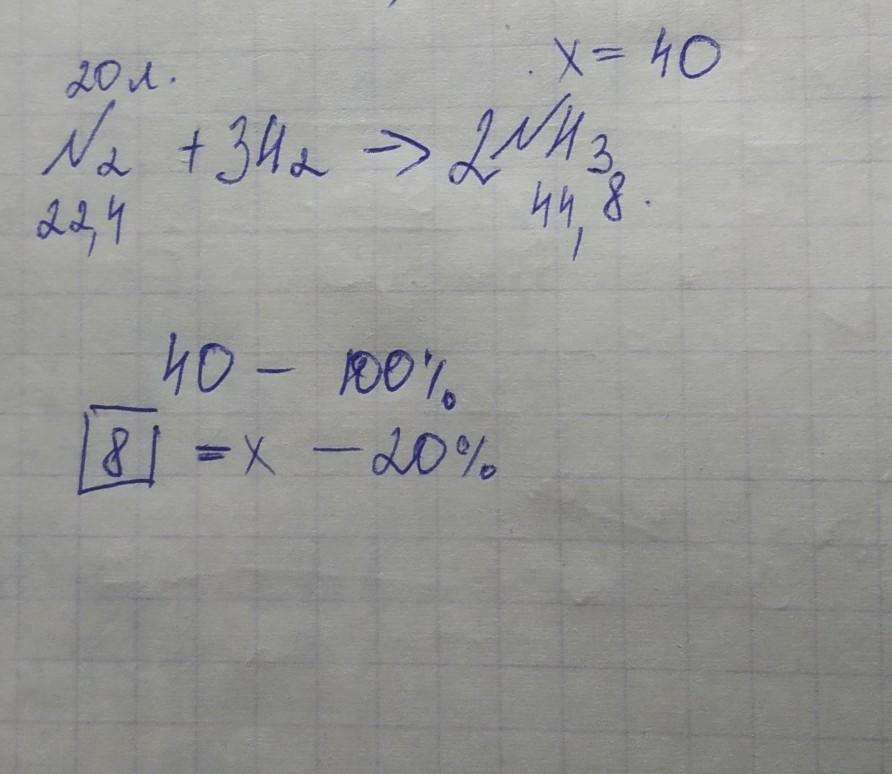 x = 40
20 л.
N₂ + 3H₂ → 2NH₃
22,4 44,8.
40 — 100%
8 = x — 20%